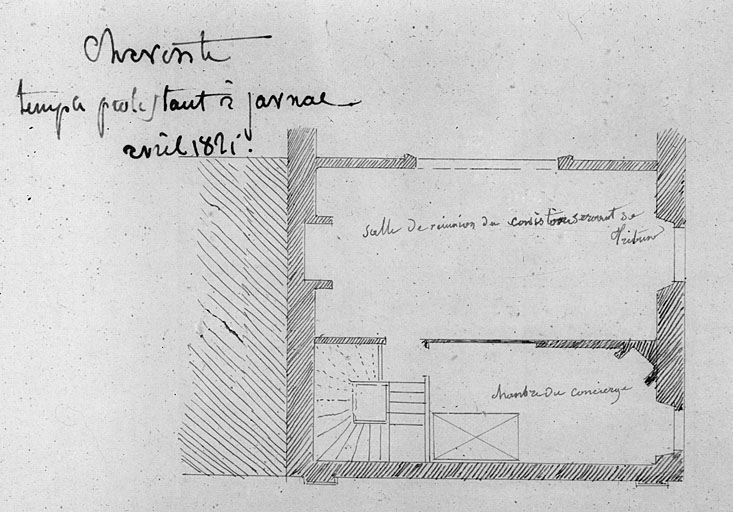 Charente
temple protestant à jarnac
avril 1821.
salle de réunion du consistoire servant de
tribune
chambre du concierge